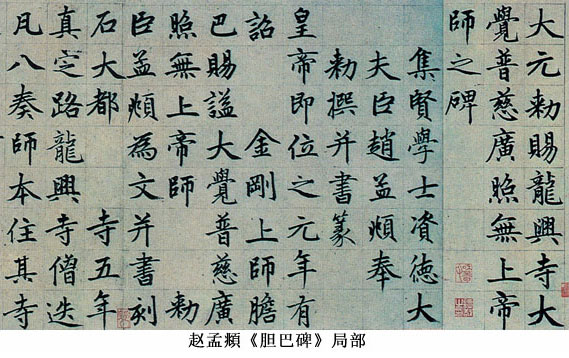 大元勑賜龍興寺大
覺普慈廣照無上帝
師之碑
集賢學士資德大
夫臣趙孟頫奉
勑撰并書篆
皇帝即位之元年有
詔 金剛上師膽
巴賜謚大覺普慈廣
照無上帝師 勑
臣孟頫為文并書刻
石大都 寺五年
真定路龍興寺僧迭
凡八奏師本住其寺
赵孟頫《胆巴碑》局部